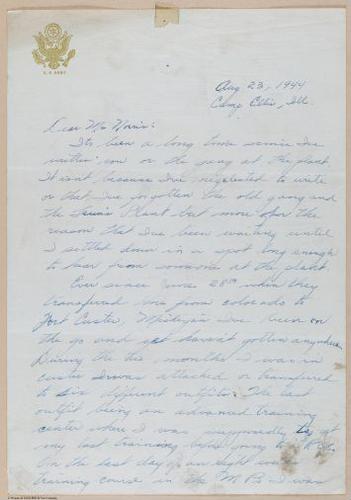 U.S. ARMY
Aug 23, 1944
Camp Ellis, Ill.
Dear Mr Norris:
Its been a long time since Ive
written you or the gang at the plant.
It isnt because Ive neglected to write
or that Ive forgotten the old gang and
the Plant but more for the
reason that Ive been waiting until
I settled down in a spot long enough
to hear from someone at the plant.
Ever since June 28th when they
transferred me from Colorado to
Fort Custer, Michigan Ive been on
the go and yet havent gotten anywhere.
During the two months I was in
Custer I was attached or transferred
to six different outfits. The last
outfit being an advanced training
center where I was supposedly to get
my last training before going to
On the last day of an eight week
training course in the M.P.s I was